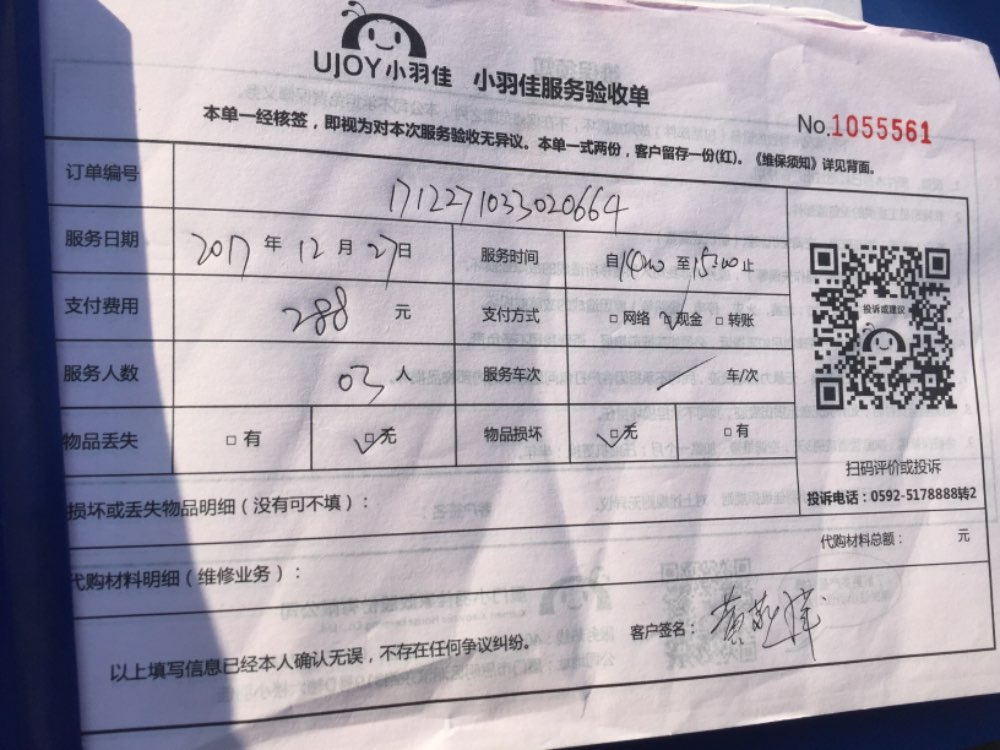 UJOY小羽佳 小羽佳服务验收单
No.1055561
本单一经核签，即视为对本次服务验收无异议。本单一式两份，客户留存一份(红)。《维保须知》详见背面。
订单编号 1712271033020664
服务日期 2017 年 12 月 27 日 服务时间 自14:00 至15:00 止
支付费用 288 元 支付方式 □网络 □现金 □转账
服务人数 03 人 服务车次 车/次
物品丢失 □有 □无 物品损坏 □无 □有
投诉或建议
扫码评价或投诉
投诉电话：0592-5178888转2
损坏或丢失物品明细（没有可不填）：
代购材料总额： 元
代购材料明细（维修业务）：
客户签名：
以上填写信息已经本人确认无误，不存在任何争议纠纷。